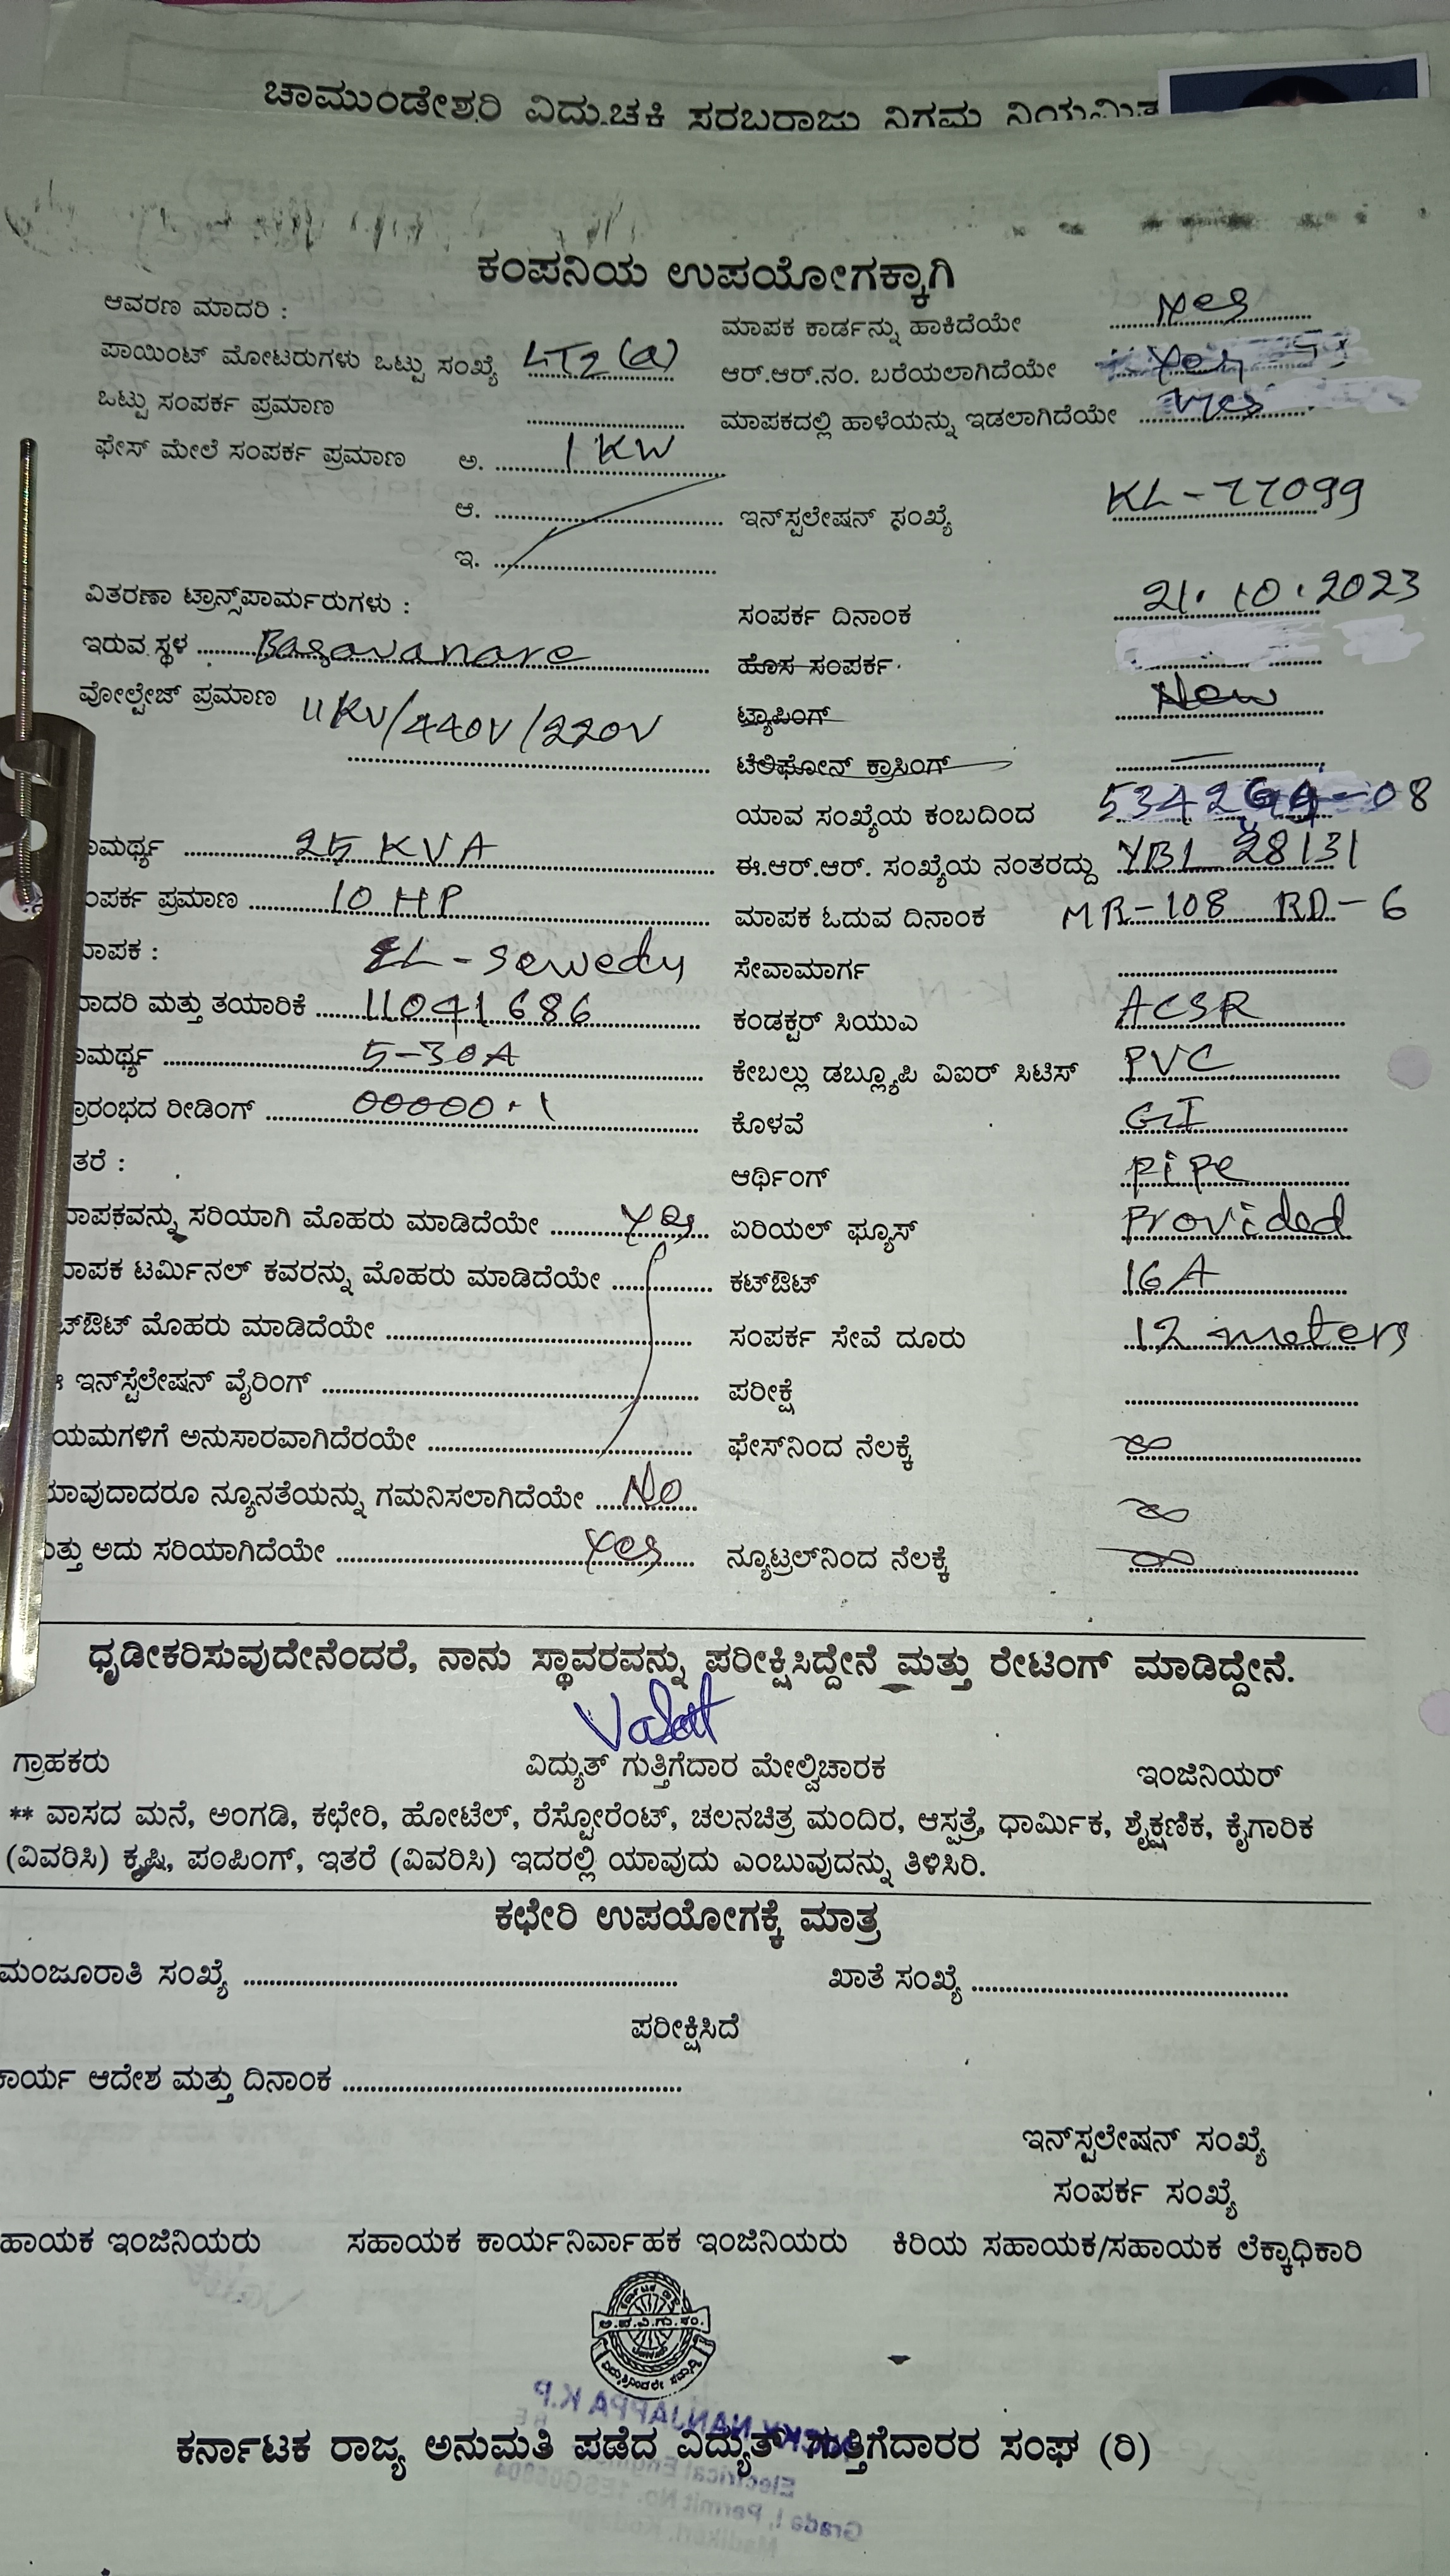 ಚಾಮುಂಡೇಶ್ವರಿ ವಿದ್ಯುಚ್ಛಕ್ತಿ ಸರಬರಾಜು ನಿಗಮ ನಿಯಮಿತ
ಕಂಪನಿಯ ಉಪಯೋಗಕ್ಕಾಗಿ
ಆವರಣ ಮಾದರಿ :
ಮಾಪಕ ಕಾರ್ಡನ್ನು ಹಾಕಿದೆಯೇ yes
ಪಾಯಿಂಟ್ ಮೋಟರುಗಳು ಒಟ್ಟು ಸಂಖ್ಯೆ LT2 (a)
ಆರ್.ಆರ್.ನಂ. ಬರೆಯಲಾಗಿದೆಯೇ Yes
ಒಟ್ಟು ಸಂಪರ್ಕ ಪ್ರಮಾಣ
ಮಾಪಕದಲ್ಲಿ ಹಾಳೆಯನ್ನು ಇಡಲಾಗಿದೆಯೇ Yes
ಫೇಸ್ ಮೇಲೆ ಸಂಪರ್ಕ ಪ್ರಮಾಣ ಅ. 1 KW
ಆ.
ಇನ್‌ಸ್ಟಲೇಷನ್ ಸಂಖ್ಯೆ KL-77099
ಇ.
ವಿತರಣಾ ಟ್ರಾನ್ಸ್‌ಪಾರ್ಮರುಗಳು :
ಸಂಪರ್ಕ ದಿನಾಂಕ 21.10.2023
ಇರುವ ಸ್ಥಳ Basavanare
ಹೊಸ ಸಂಪರ್ಕ
ವೋಲ್ಟೇಜ್ ಪ್ರಮಾಣ 11KV/440V/220V
ಟ್ಯಾಪಿಂಗ್ New
ಟೆಲಿಫೋನ್ ಕ್ರಾಸಿಂಗ್
ಯಾವ ಸಂಖ್ಯೆಯ ಕಂಬದಿಂದ
ಾಮರ್ಥ್ಯ 25 KVA
ಈ.ಆರ್.ಆರ್. ಸಂಖ್ಯೆಯ ನಂತರದ್ದು YBL 28131
ಂಪರ್ಕ ಪ್ರಮಾಣ 10 HP
ಮಾಪಕ ಓದುವ ದಿನಾಂಕ MR-108 RD-6
ಾಪಕ : EL-Sewedy
ಸೇವಾಮಾರ್ಗ
ಾದರಿ ಮತ್ತು ತಯಾರಿಕೆ 11041686
ಕಂಡಕ್ಟರ್ ಸಿಯುಎ ACSR
ಾಮರ್ಥ್ಯ 5-30A
ಕೇಬಲ್ಲು ಡಬ್ಲ್ಯೂಪಿ ವಿಐರ್ ಸಿಟಿಸ್ PVC
ಾರಂಭದ ರೀಡಿಂಗ್ 00000.1
ಕೊಳವೆ GI
ತರೆ :
ಆರ್ಥಿಂಗ್ pipe
ಾಪಕವನ್ನು ಸರಿಯಾಗಿ ಮೊಹರು ಮಾಡಿದೆಯೇ Yes
ಏರಿಯಲ್ ಫ್ಯೂಸ್ Provided
ಾಪಕ ಟರ್ಮಿನಲ್ ಕವರನ್ನು ಮೊಹರು ಮಾಡಿದೆಯೇ
ಕಟ್‌ಔಟ್ 16A
ಟ್‌ಔಟ್ ಮೊಹರು ಮಾಡಿದೆಯೇ
ಸಂಪರ್ಕ ಸೇವೆ ದೂರು 12 meters
ಇನ್‌ಸ್ಟೆಲೇಷನ್ ವೈರಿಂಗ್
ಪರೀಕ್ಷೆ
ಯಮಗಳಿಗೆ ಅನುಸಾರವಾಗಿದೆರಯೇ
ಫೇಸ್‌ನಿಂದ ನೆಲಕ್ಕೆ ∞
ಾವುದಾದರೂ ನ್ಯೂನತೆಯನ್ನು ಗಮನಿಸಲಾಗಿದೆಯೇ No
∞
ತ್ತು ಅದು ಸರಿಯಾಗಿದೆಯೇ Yes
ನ್ಯೂಟ್ರಲ್‌ನಿಂದ ನೆಲಕ್ಕೆ ∞
ಧೃಡೀಕರಿಸುವುದೇನೆಂದರೆ, ನಾನು ಸ್ಥಾವರವನ್ನು ಪರೀಕ್ಷಿಸಿದ್ದೇನೆ ಮತ್ತು ರೇಟಿಂಗ್ ಮಾಡಿದ್ದೇನೆ.
ಗ್ರಾಹಕರು ವಿದ್ಯುತ್ ಗುತ್ತಿಗೆದಾರ ಮೇಲ್ವಿಚಾರಕ ಇಂಜಿನಿಯರ್
** ವಾಸದ ಮನೆ, ಅಂಗಡಿ, ಕಛೇರಿ, ಹೋಟೆಲ್, ರೆಸ್ಟೋರೆಂಟ್, ಚಲನಚಿತ್ರ ಮಂದಿರ, ಆಸ್ಪತ್ರೆ, ಧಾರ್ಮಿಕ, ಶೈಕ್ಷಣಿಕ, ಕೈಗಾರಿಕ
(ವಿವರಿಸಿ) ಕೃಷಿ, ಪಂಪಿಂಗ್, ಇತರೆ (ವಿವರಿಸಿ) ಇದರಲ್ಲಿ ಯಾವುದು ಎಂಬುವುದನ್ನು ತಿಳಿಸಿರಿ.
ಕಛೇರಿ ಉಪಯೋಗಕ್ಕೆ ಮಾತ್ರ
ಮಂಜೂರಾತಿ ಸಂಖ್ಯೆ ಖಾತೆ ಸಂಖ್ಯೆ
ಪರೀಕ್ಷಿಸಿದೆ
ಕಾರ್ಯ ಆದೇಶ ಮತ್ತು ದಿನಾಂಕ
ಇನ್‌ಸ್ಟಲೇಷನ್ ಸಂಖ್ಯೆ
ಸಂಪರ್ಕ ಸಂಖ್ಯೆ
ಹಾಯಕ ಇಂಜಿನಿಯರು ಸಹಾಯಕ ಕಾರ್ಯನಿರ್ವಾಹಕ ಇಂಜಿನಿಯರು ಕಿರಿಯ ಸಹಾಯಕ/ಸಹಾಯಕ ಲೆಕ್ಕಾಧಿಕಾರಿ
ಅ.ಪ.ವಿ.ಗು.ಸಂ.
ಕರ್ನಾಟಕ ರಾಜ್ಯ ಅನುಮತಿ ಪಡೆದ ವಿದ್ಯುತ್ ಗುತ್ತಿಗೆದಾರರ ಸಂಘ (ರಿ)